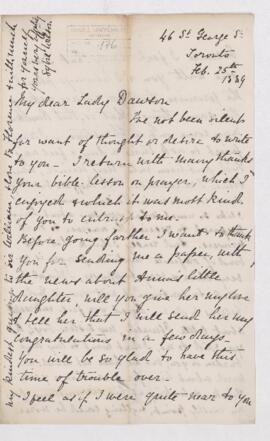 46 St. George St
Toronto
Feb. 25th
1889
My dear Lady Dawson
I've not been silent
for want of thought or desire to write
to you - I return with many thanks
your bible-lesson on prayer, which I
enjoyed & which it was most kind
of you to entrust to me.
Before going farther I want to thank
you for sending me a paper, with
the news about Anna's little
daughter, will you give her my love
& tell her that I will send her my
congratulations in a few days -
You will be so glad to have this
time of trouble over -
I feel as if I were quite near to you
my kindest to Sir William & love to Florence & with much
for yourself